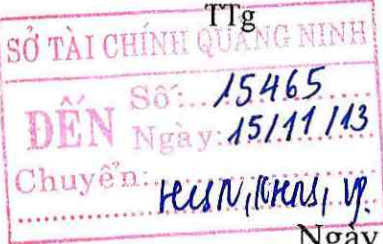 TTg
SỞ TÀI CHÍNH QUẢNG NINH
ĐẾN Số:..15465
Ngày:.15/11/13
Chuyển:
VP.
Ngày